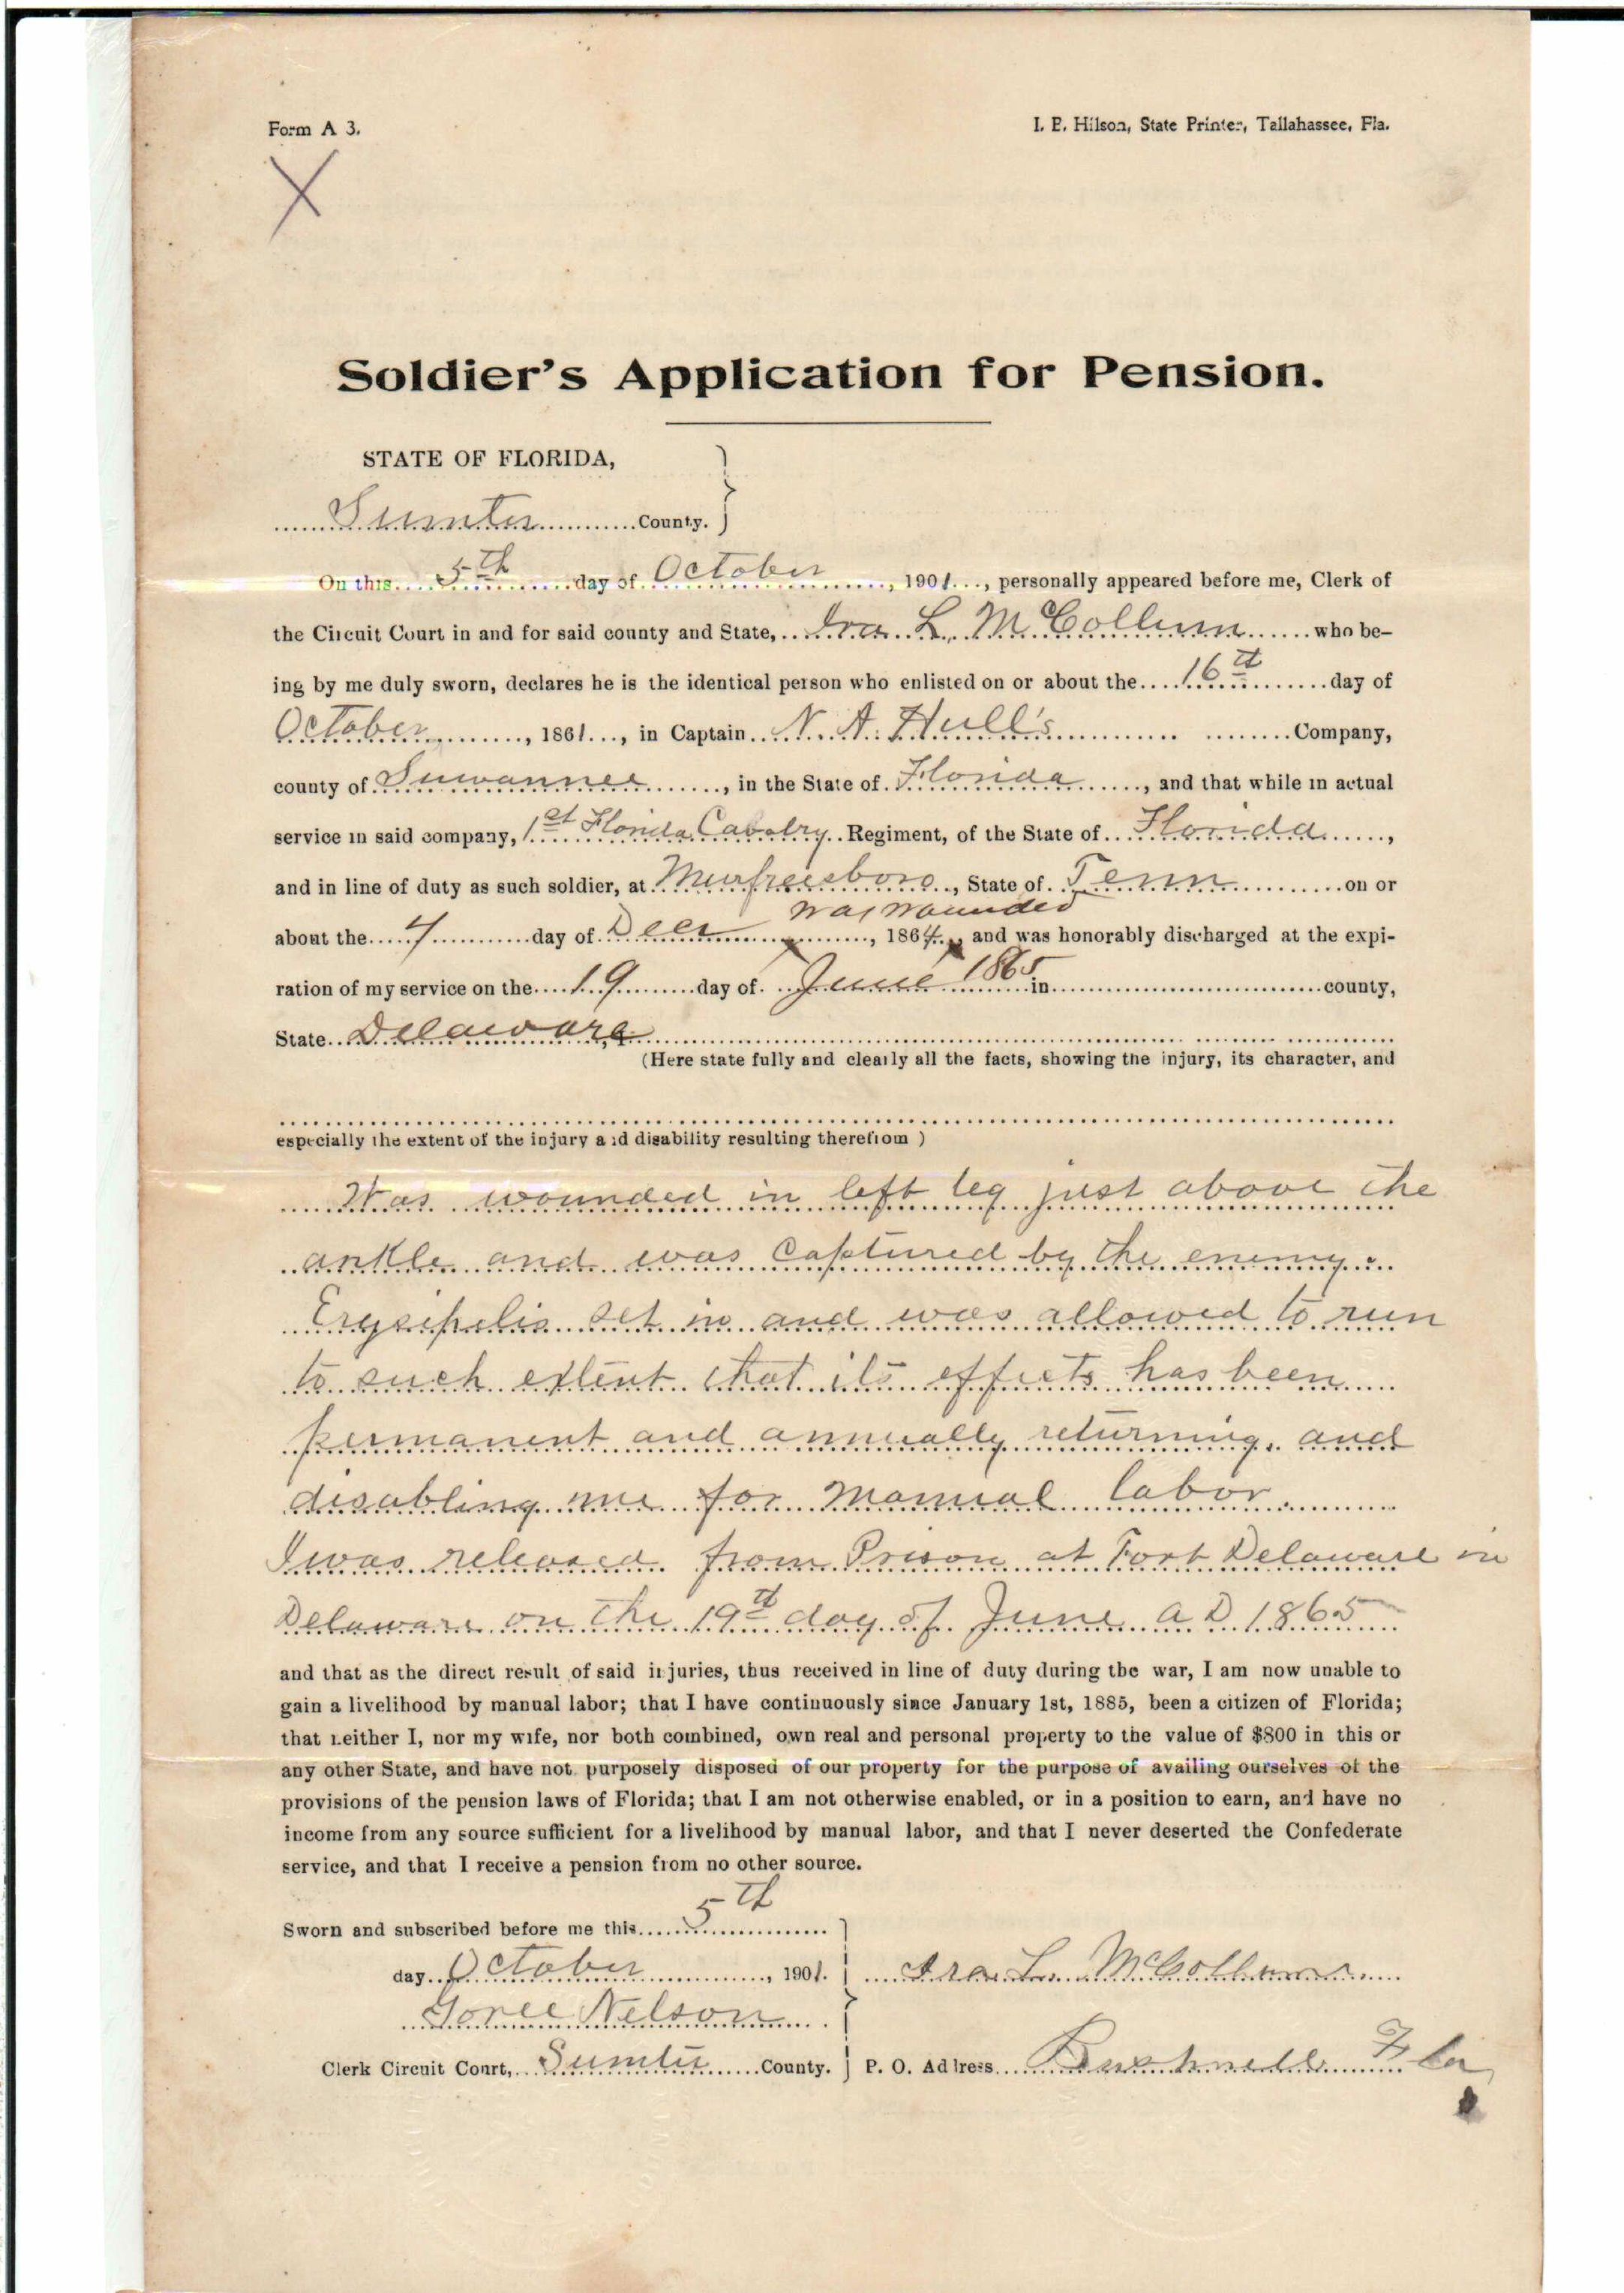 Form A 3.
I. E. Hilson, State Printer, Tallahassee, Fla.
X
Soldier's Application for Pension.
STATE OF FLORIDA,
Sumter County.
On this 5th day of October, 1901, personally appeared before me, Clerk of
the Circuit Court in and for said county and State, Ira L. McCollum who be-
ing by me duly sworn, declares he is the identical person who enlisted on or about the 16th day of
October, 1861, in Captain N. A. Hull's Company,
county of Suwannee, in the State of Florida, and that while in actual
service in said company, 1st Florida Cavalry Regiment, of the State of Florida,
and in line of duty as such soldier, at Murfreesboro, State of Tenn on or
was wounded
about the 7 day of Decr, 1864, and was honorably discharged at the expi-
ration of my service on the 19 day of June 1865 in county,
State Delaware
(Here state fully and clearly all the facts, showing the injury, its character, and
especially the extent of the injury and disability resulting therefrom )
Was wounded in left leg just above the
ankle and was captured by the enemy.
Erysipelis set in and was allowed to run
to such extent that its effects has been
permanent and annually returning, and
disabling me for manual labor.
I was released from Prison at Fort Delaware in
Delaware on the 19th day of June A D 1865
and that as the direct result of said injuries, thus received in line of duty during the war, I am now unable to
gain a livelihood by manual labor; that I have continuously since January 1st, 1885, been a citizen of Florida;
that neither I, nor my wife, nor both combined, own real and personal property to the value of $800 in this or
any other State, and have not purposely disposed of our property for the purpose of availing ourselves of the
provisions of the pension laws of Florida; that I am not otherwise enabled, or in a position to earn, and have no
income from any source sufficient for a livelihood by manual labor, and that I never deserted the Confederate
service, and that I receive a pension from no other source.
Sworn and subscribed before me this 5th
day October, 1901.
Ira L. McCollum
Goree Nelson
Clerk Circuit Court, Sumter County.
P. O. Address Bushnell Fla